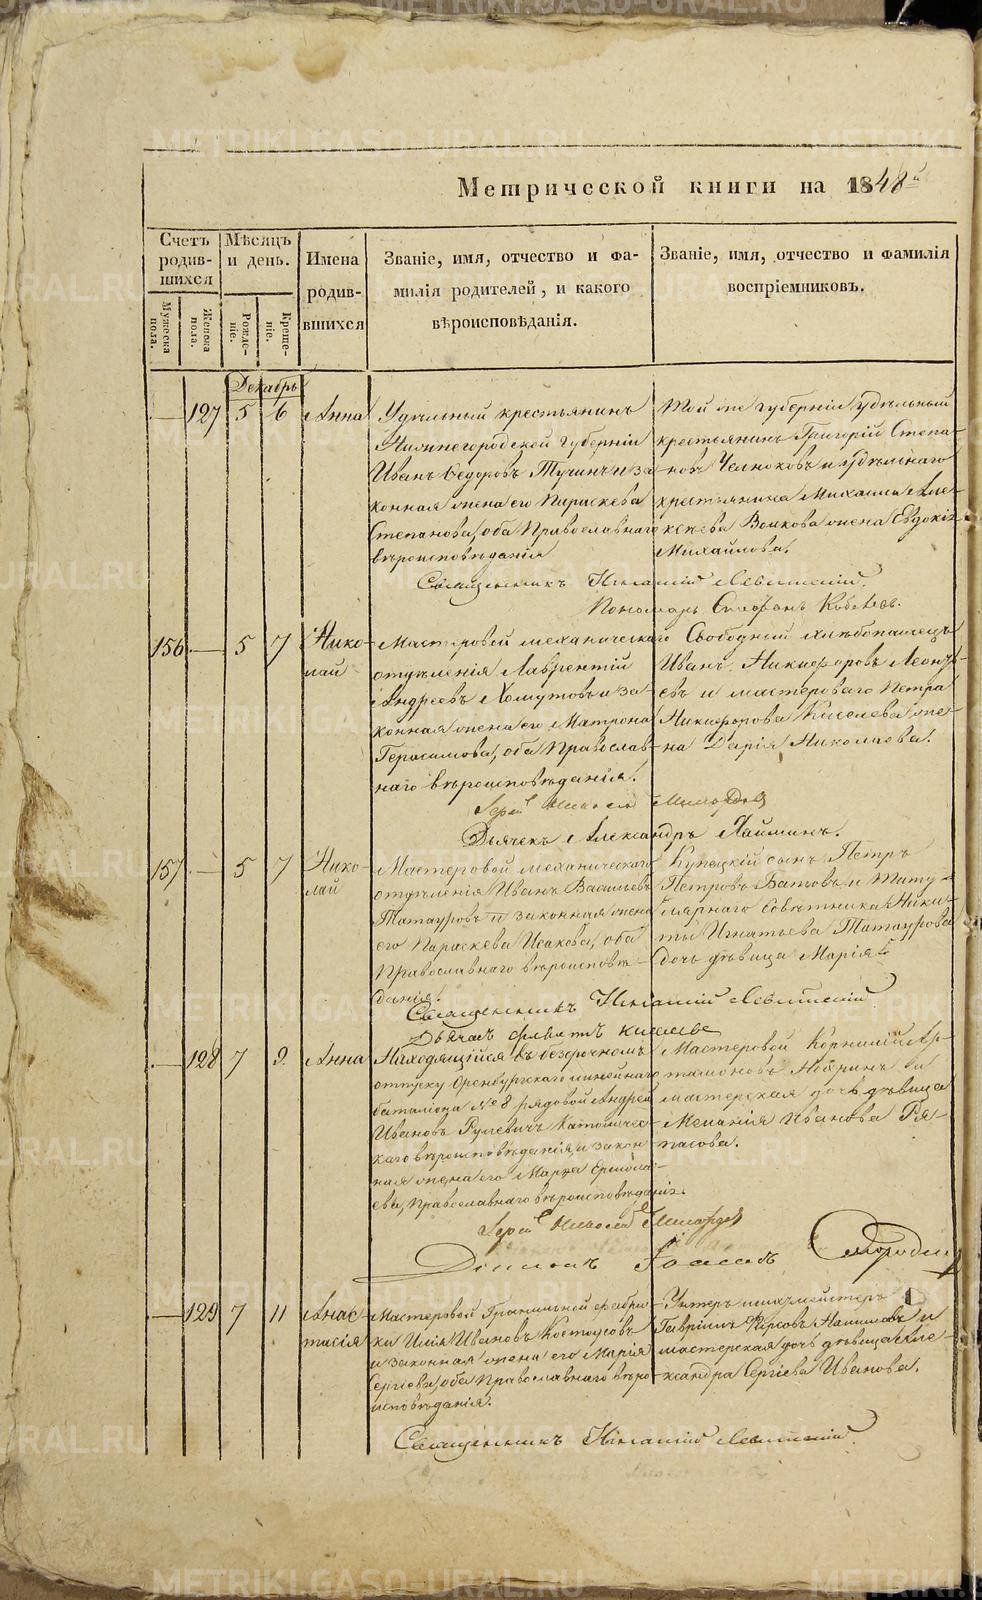 METRIKI.GASO-URAL.RU
Метрической книги на 1848й
Счетъ родившихся
Мѣсяцъ и день.
Имена родившихся
Званіе, имя, отчество и фамилія родителей, и какого вѣроисповѣданія.
Званіе, имя, отчество и фамилія воспріемниковъ.
Мужеска пола.
Женска пола.
Рожденіе.
Крещеніе.
Декабрь
127 5 6 Анна
Удѣльный крестьянинъ
Нижнегородской губерніи
Иванъ Ѳедоровъ Тучинъ и за-
конная жена его Параскева
Степанова, оба Православнаго
вѣроисповѣданія
Той же губерніи удѣльный
крестьянинъ Григорій Степа-
новъ Челноковъ и удѣльнаго
крестьянина Михаила Але-
ксѣева Волкова жена Евдокія
Михайлова.
Священникъ Игнатій Левитскій
Пономарь Стефанъ
156 5 7 Нико-
лай
Мастеровой механическаго
отдѣленія Лаврентій
Андреевъ Хомутовъ и за-
конная жена его Матрона
Герасимова, оба Православ-
наго вѣроисповѣданія.
Свободный хлѣбопашецъ
Иванъ Никифоровъ Леонть-
евъ и мастероваго Петра
Никифорова Киселева же-
на Дарія Николаева.
Іерей Николай
Дьячекъ Александръ
157 5 7 Нико-
лай
Мастеровой механическаго
отдѣленія Иванъ Васильевъ
Татауровъ и законная жена
его Параскева Исакова, оба
Православнаго вѣроисповѣ-
данія.
Купецкій сынъ Петръ
Петровъ Батовъ и Титу-
лярнаго Совѣтника Ники-
ты Игнатьева Татаурова
дочь дѣвица Марія
Священникъ Игнатій Левитскій
Дьячекъ
128 7 9 Анна
Находящійся въ безсрочномъ
отпуску Оренбургскаго линейнаго
баталіона № 8 рядовой Андрей
Ивановъ Рулевичъ Католичес-
каго вѣроисповѣданія, и закон-
ная жена его Марѳа Ермола-
ева, Православнаго вѣроисповѣданія.
Мастеровой Корнилій Ар-
тамоновъ
мастерская дочь дѣвица
Меланія Иванова Ря-
пасова.
Іерей Николай
Діаконъ Іоаннъ Смородин
129 7 11 Анас-
тасія
Мастеровой Гранильной фабри-
ки Илія Ивановъ Костоусовъ
и законная жена его Марія
Сергіева, оба Православнаго вѣро-
исповѣданія.
Унтеръ шихтмейстеръ
Гавріилъ Фирсовъ и
мастерская дочь дѣвица Але-
ксандра Сергіева Иванова.
Священникъ Игнатій Левитскій